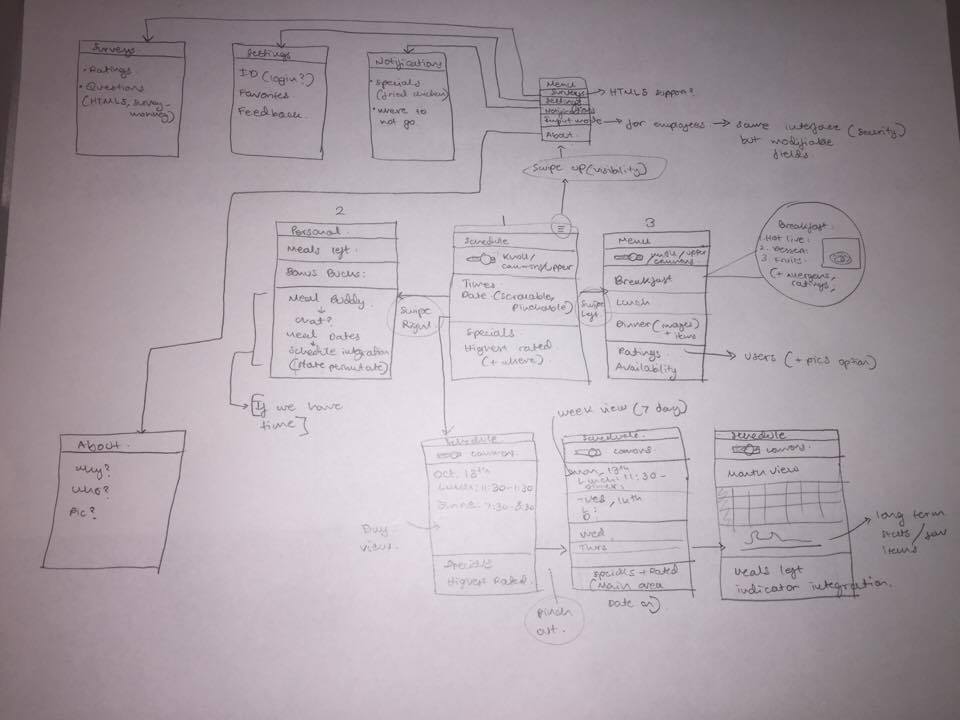 Surveys
• Ratings
• Questions
(HTML5, survey-
monkey)
Settings
ID (login?)
Favorites
Feedback
Notifications
• Specials
(fried chicken)
• where to
not go
Menu
Surveys
Settings
Notifications
Input mode
About
HTML5 support?
for employees
same interface (security)
but modifiable
fields
Swipe up (visibility)
2
Personal
Meals left:
Bonus Bucks:
Meal Buddy
chat?
Meal Dates
Schedule integration
(state permutate)
[If we have
time]
Swipe
Right
1
Schedule
Knoll/
commons/upper
Times
Date (Scrollable,
Pinchable)
Specials
Highest rated
(+ where)
Swipe
Left
3
Menu
knoll/upper
commons
Breakfast
Lunch
Dinner (images)
+ items
Ratings
Availability
Users (+ pics option)
Breakfast:
1. Hot line:
2. Dessert:
3. Fruits:
(+ allergens,
ratings,
About
Why?
Who?
Pic?
Day
view
Schedule
commons
Oct. 13th
Lunch: 11:30-1:30
Specials
Highest Rated
Pinch
out
week view (7 day)
Schedule
commons
Mon, 13th
Lunch: 11:30-
Tues, 14th
L:
D:
Wed
Thurs
Specials + Rated
(Main area
Date on)
Schedule
commons
Month view
Meals left
indicator integration
long term
stats/fav
items